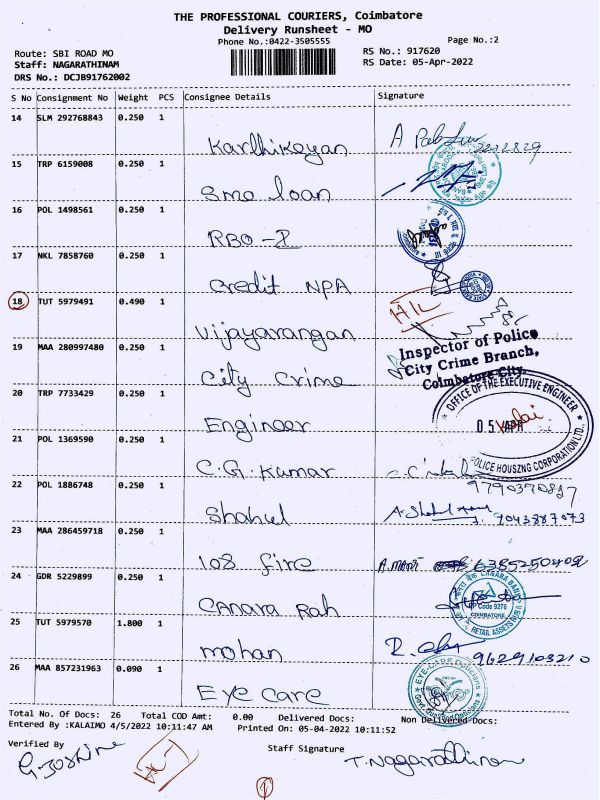 THE PROFESSIONAL COURIERS, Coimbatore
Delivery Runsheet - MO
Phone No.:0422-3505555
Page No.:2
Route: SBI ROAD MO
RS No.: 917620
Staff: NAGARATHINAM
RS Date: 05-Apr-2022
DRS No.: DCJB91762002
S No Consignment No Weight PCS Consignee Details Signature
14 SLM 292768843 0.250 1
Karthikeyan
15 TRP 6159008 0.250 1
Sme loan
16 POL 1498561 0.250 1
RBO-I
17 NKL 7858760 0.250 1
Credit NPA
18 TUT 5979491 0.490 1
Vijayarangan
Inspector of Police
19 MAA 280997480 0.250 1
City Crime Branch,
City Crime
Coimbatore City.
20 TRP 7733429 0.250 1
OFFICE OF THE EXECUTIVE ENGINEER
Engineer
05 APR
21 POL 1369590 0.250 1
POLICE HOUSZNG CORPORATION LTD.,
C.G. Kumar
22 POL 1886748 0.250 1
Shahul
7043887073
23 MAA 286459718 0.250 1
108 fire
24 GDR 5229899 0.250 1
CANARA BANK
DP Code 9276
COIMBATORE
RETAIL ASSETS HUB
CANARA Rah
25 TUT 5979570 1.800 1
mohan
9629103210
26 MAA 857231963 0.090 1
EYE-CARE Opticians
Eye care
Total No. Of Docs: 26 Total COD Amt: 0.00 Delivered Docs: Non Delivered Docs:
Entered By :KALAIMO 4/5/2022 10:11:47 AM Printed On: 05-04-2022 10:11:52
Verified By
Staff Signature
T. Nagarathinam